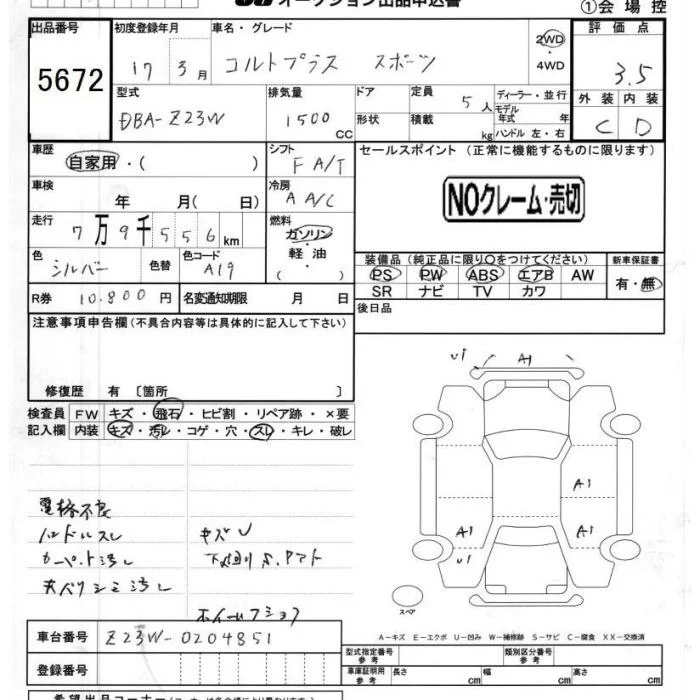 オークション出品申込書
①会場控
出品番号
5672
初度登録年月
17 3月
車名・グレード
コルトプラス スポーツ
2WD
・
4WD
評価点
3.5
外装 内装
C D
型式
DBA-Z23W
排気量
1500
CC
ドア
形状
定員
5人
積載
kg
ディーラー・並行
モデル
年式 年
ハンドル 左・右
車歴
自家用・( )
シフト
F A/T
車検
年 月( 日)
冷房
A A/C
走行
7万9千556km
燃料
ガソリン
・
軽油
( )
色
シルバー
色替
色コード
A19
R券 10.800円
名変通知期限 月 日
セールスポイント (正常に機能するものに限ります)
NOクレーム・売切
装備品(純正品に限り○をつけてください)
PS PW ABS エアB AW
SR ナビ TV カワ
新車保証書
有・無
後日品
注意事項申告欄(不具合内容等は具体的に記入して下さい)
修復歴 有 〔箇所 〕
検査員
記入欄
FW キズ・飛石・ヒビ割・リペア跡・×要
内装 キズ・汚レ・コゲ・穴・スレ・キレ・破レ
電格不良
ハンドルスレ
カーペット汚レ
天バリシミ汚レ
キズU
下廻りS.アマト
U1 A1
A1
A1 A1
U1
スペア
A－キズ E－エクボ U－凹み W－補修跡 S－サビ C－腐食 XX－交換済
車台番号
Z23W-0204851
登録番号
型式指定番号
参考
類別区分番号
参考
車庫証明用
参考
長さ cm 幅 cm 高さ cm